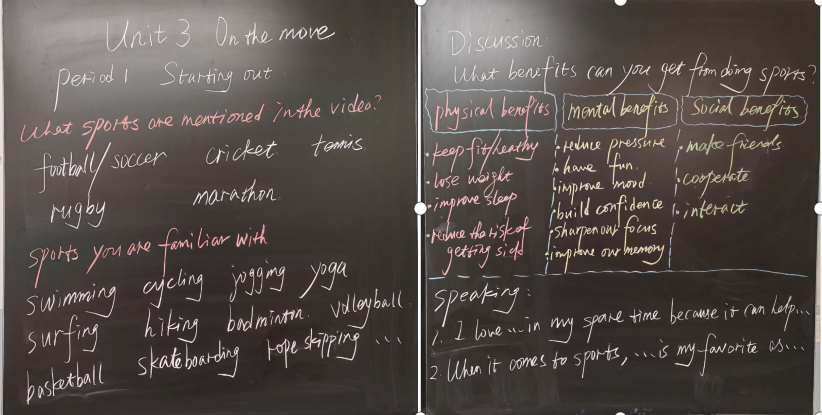 Unit 3 On the move
period 1 Starting out
What sports are mentioned in the video?
football/soccer cricket tennis
rugby marathon
sports you are familiar with
swimming cycling jogging yoga
surfing hiking badminton volleyball
basketball skateboarding rope skipping ...
Discussion:
What benefits can you get from doing sports?
physical benefits
· keep fit/healthy
· lose weight
· improve sleep
· reduce the risk of
getting sick
mental benefits
· reduce pressure
· have fun
· improve mood
· build confidence
· sharpen our focus
· improve our memory
Social benefits
· make friends
· cooperate
· interact
Speaking:
1. I love ... in my spare time because it can help...
2. When it comes to sports, ... is my favorite as...